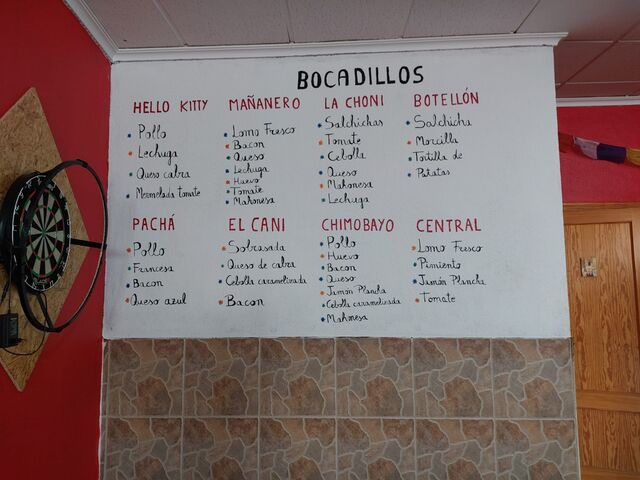 BOCADILLOS
HELLO KITTY
Pollo
Lechuga
Queso cabra
Mermelada tomate
MAÑANERO
Lomo Fresco
Bacon
Queso
Lechuga
Huevo
Tomate
Mahonesa
LA CHONI
Salchichas
Tomate
Cebolla
Queso
Mahonesa
Lechuga
BOTELLÓN
Salchicha
Morcilla
Tortilla de
Patatas
PACHÁ
Pollo
Francesa
Bacon
Queso azul
EL CANI
Sobrasada
Queso de cabra
Cebolla caramelizada
Bacon
CHIMOBAYO
Pollo
Huevo
Bacon
Queso
Jamón Plancha
Cebolla caramelizada
Mahonesa
CENTRAL
Lomo Fresco
Pimiento
Jamón Plancha
Tomate